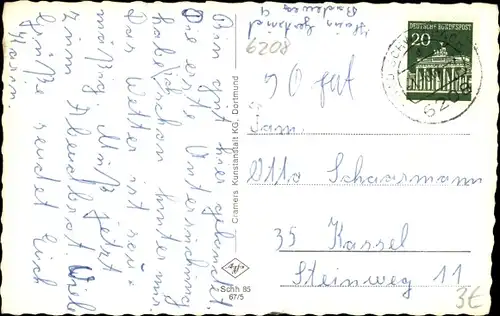 Bin gut hier gelandet.
Die erste Untersuchung
habe ich schon hinter mir.
Das Wetter ist so
mäßig. Muß jetzt
zum Abendbrot. Viele
Grüße sendet Euch
Hans
Badeweg 9
6208
50 gut
Fam.
Otto Schaarmann
35 Kassel
Steinweg 11
DEUTSCHE BUNDESPOST
20
6208
Cramers Kunstanstalt KG, Dortmund
Schh 85
67/5
3€